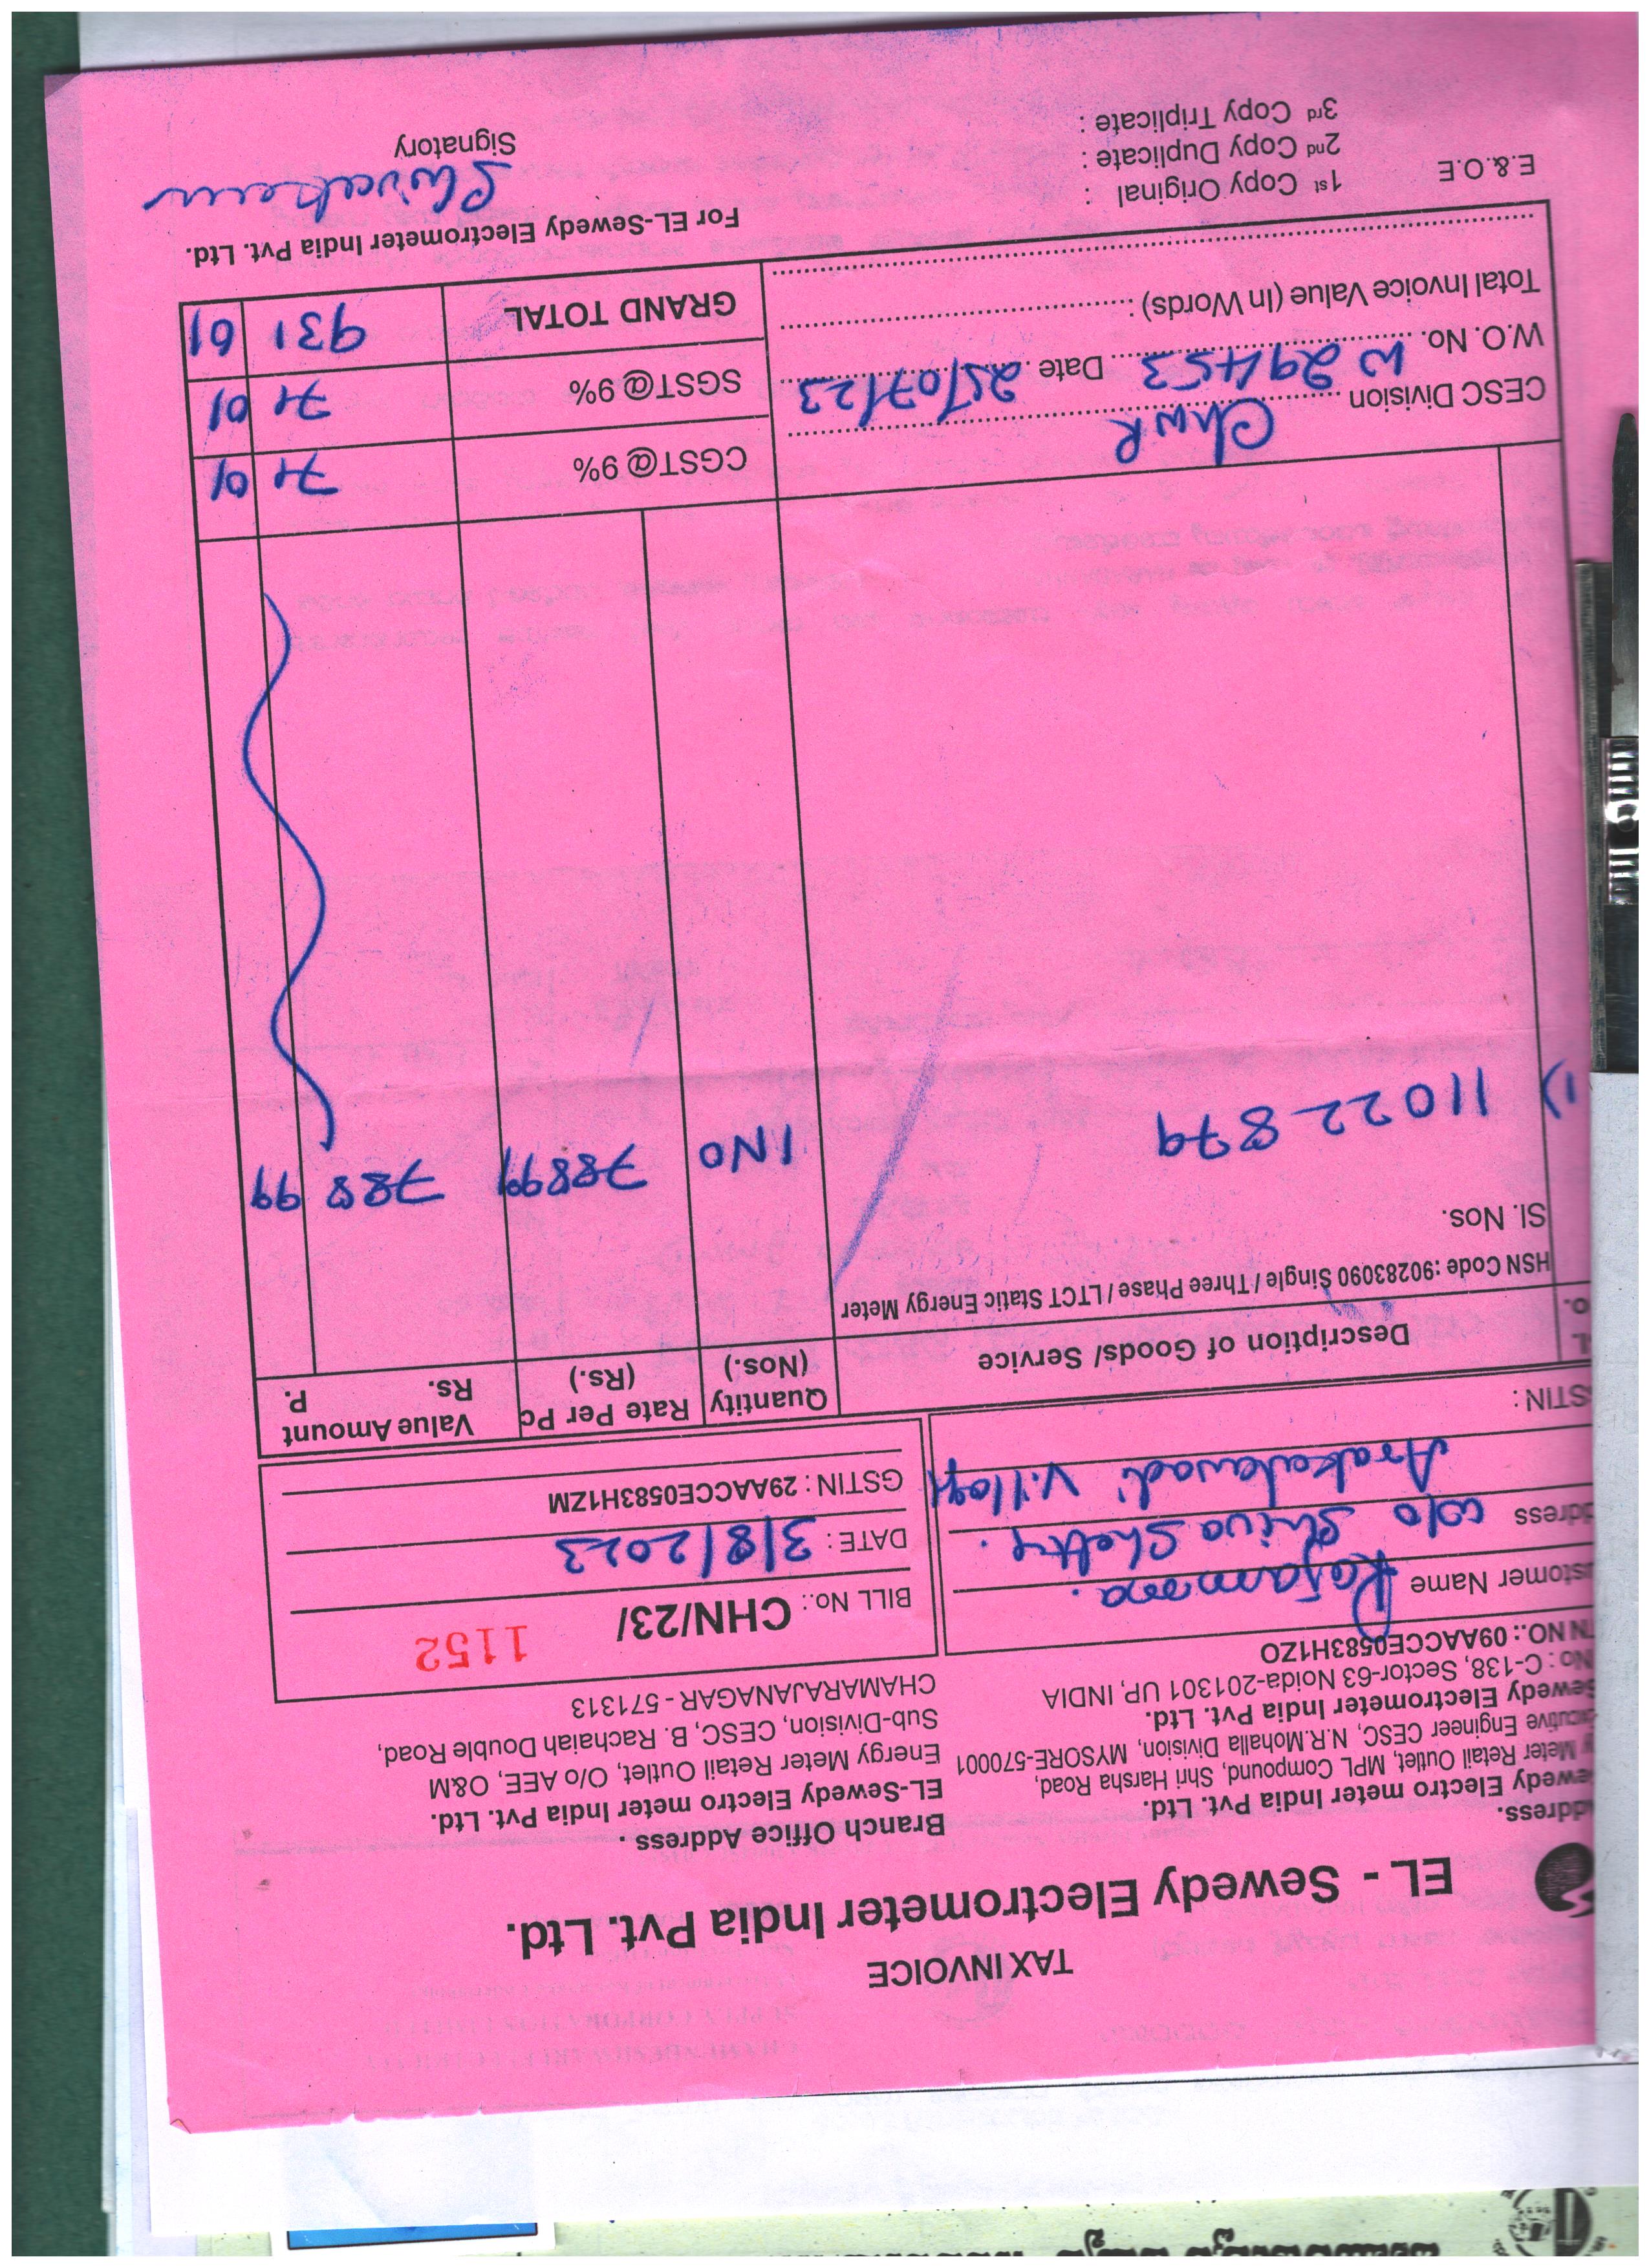 TAX INVOICE
EL - Sewedy Electrometer India Pvt. Ltd.
ddress.
ewedy Electro meter India Pvt. Ltd.
Meter Retail Outlet, MPL Compound, Shri Harsha Road,
cutive Engineer CESC, N.R.Mohalla Division, MYSORE-570001
Sewedy Electrometer India Pvt. Ltd.
No : C-138, Sector-63 Noida-201301 UP, INDIA
TN NO.: 09AACCE0583H1ZO
Branch Office Address .
EL-Sewedy Electro meter India Pvt. Ltd.
Energy Meter Retail Outlet, O/o AEE, O&M
Sub-Division, CESC, B. Rachaiah Double Road,
CHAMARAJANAGAR - 571313
ustomer Name Rajamma.
ddress W/o Shiva Shetty.
Arakalavadi Village
STIN :
BILL No.: CHN/23/ 1152
DATE : 3/8/2023
GSTIN : 29AACCE0583H1ZM
L
o.
Description of Goods/ Service
Quantity (Nos.)
Rate Per Pc (Rs.)
Value Amount
Rs. P.
HSN Code : 90283090 Single / Three Phase / LTCT Static Energy Meter
Sl. Nos.
1) 11022879 1 NO 78899 788 99
CESC Division ChnR
W.O. No. W 29453 Date 25/07/23
Total Invoice Value (In Words) :
CGST@ 9% 71 01
SGST@ 9% 71 01
GRAND TOTAL 931 01
E.&.O.E
1st Copy Original :
2nd Copy Duplicate :
3rd Copy Triplicate :
For EL-Sewedy Electrometer India Pvt. Ltd.
Signatory